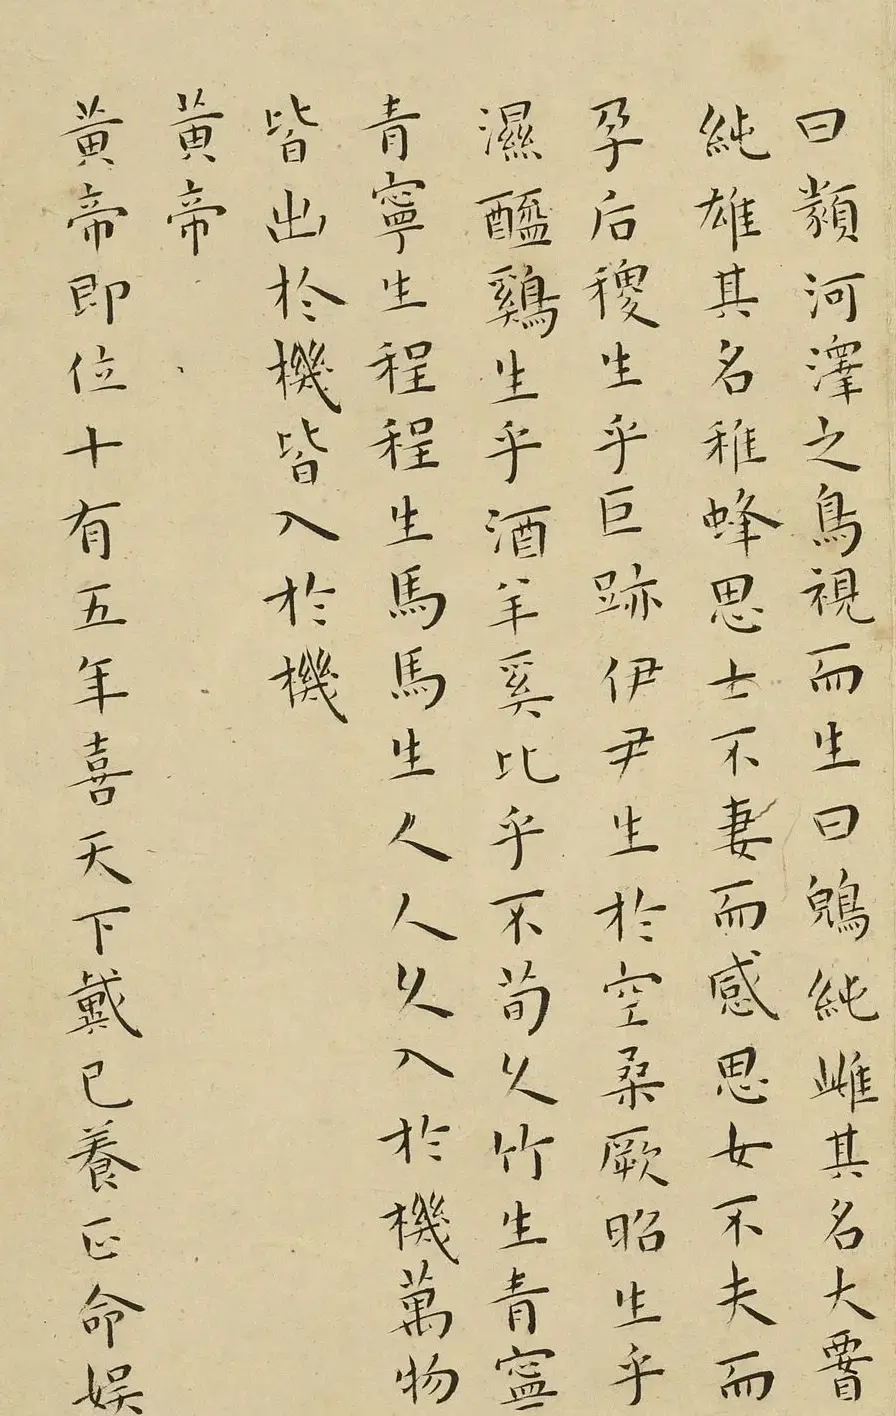 曰類河澤之鳥視而生曰鶂純雌其名大䁂
純雄其名稚蜂思士不妻而感思女不夫而
孕后稷生乎巨跡伊尹生於空桑厥昭生乎
濕醯鷄生乎酒羊奚比乎不荀久竹生青寧
青寧生程程生馬馬生人人久入於機萬物
皆出於機皆入於機
黃帝
黃帝即位十有五年喜天下戴已養正命娱